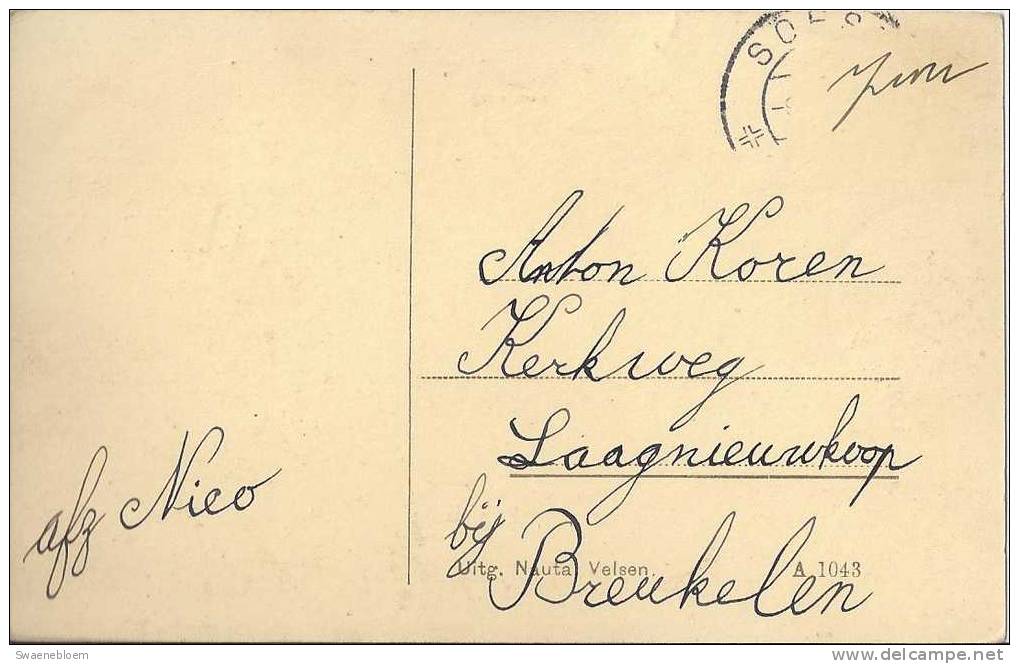 SOES
Anton Koren
Kerkweg
Laagnieuwkoop
bij
Breukelen
afz Nico
Uitg. Nauta, Velsen. A 1043
Swaenebloem
delcampe.net